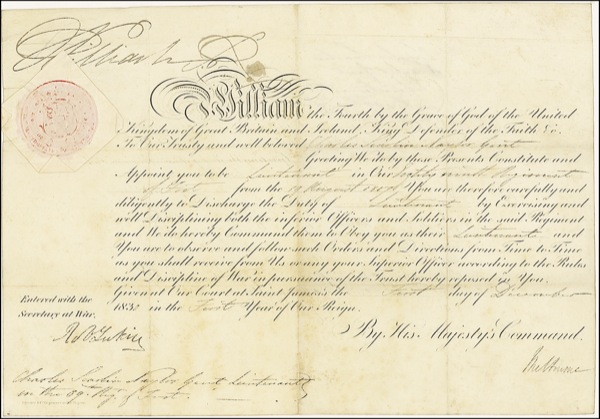 William R
William the Fourth by the Grace of God of the United
Kingdom of Great Britain and Ireland, King, Defender of the Faith &c.
To Our Trusty and well beloved Charles Naylor Gent
Greeting We do by these Presents, Constitute and
Appoint you to be Lieutenant in Our Regiment
of Foot from the August You are therefore carefully and
diligently to Discharge the Duty of Lieutenant by Exercising and
well Disciplining both the inferior Officers and Soldiers in the said Regiment
and We do hereby Command them to Obey you as their Lieutenant and
You are to observe and follow such Orders and Directions from Time to Time
as you shall receive from Us or any your Superior Officer according to the Rules
and Discipline of War in pursuance of the Trust hereby reposed in You.
Given at Our Court at Saint James's the First day of December
183 in the First Year of Our Reign.
Entered with the
Secretary at War.
By His Majesty's Command.
Melbourne
Charles Naylor Gent Lieutenant
in the Reg. of Foot